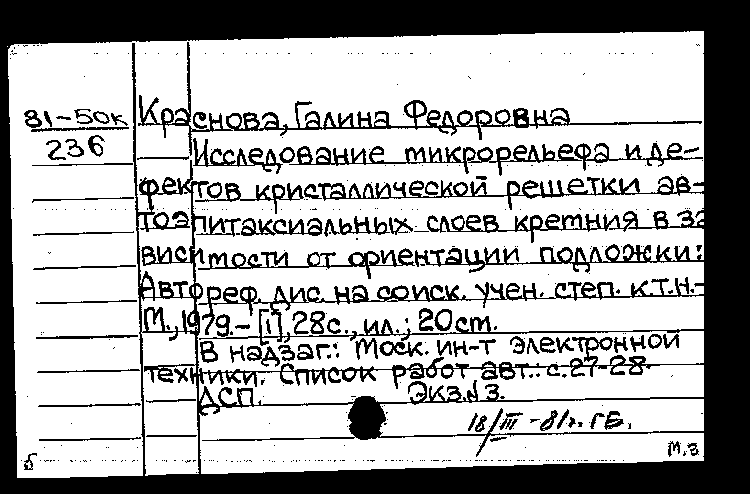 81-50к
236
Краснова, Галина Федоровна
Исследование микрорельефа и де-
фектов кристаллической решетки ав-
тоэпитаксиальных слоев кремния в за
висимости от ориентации подложки:
Автореф. дис. на соиск. учен. степ. к.т.н.-
М., 1979.- [1], 28с., ил.; 20см.
В надзаг.: Моск. ин-т электронной
техники. Список работ авт.: с.27-28.
ДСП. Экз.№3.
18/III-81г. ГБ.
М.З
б